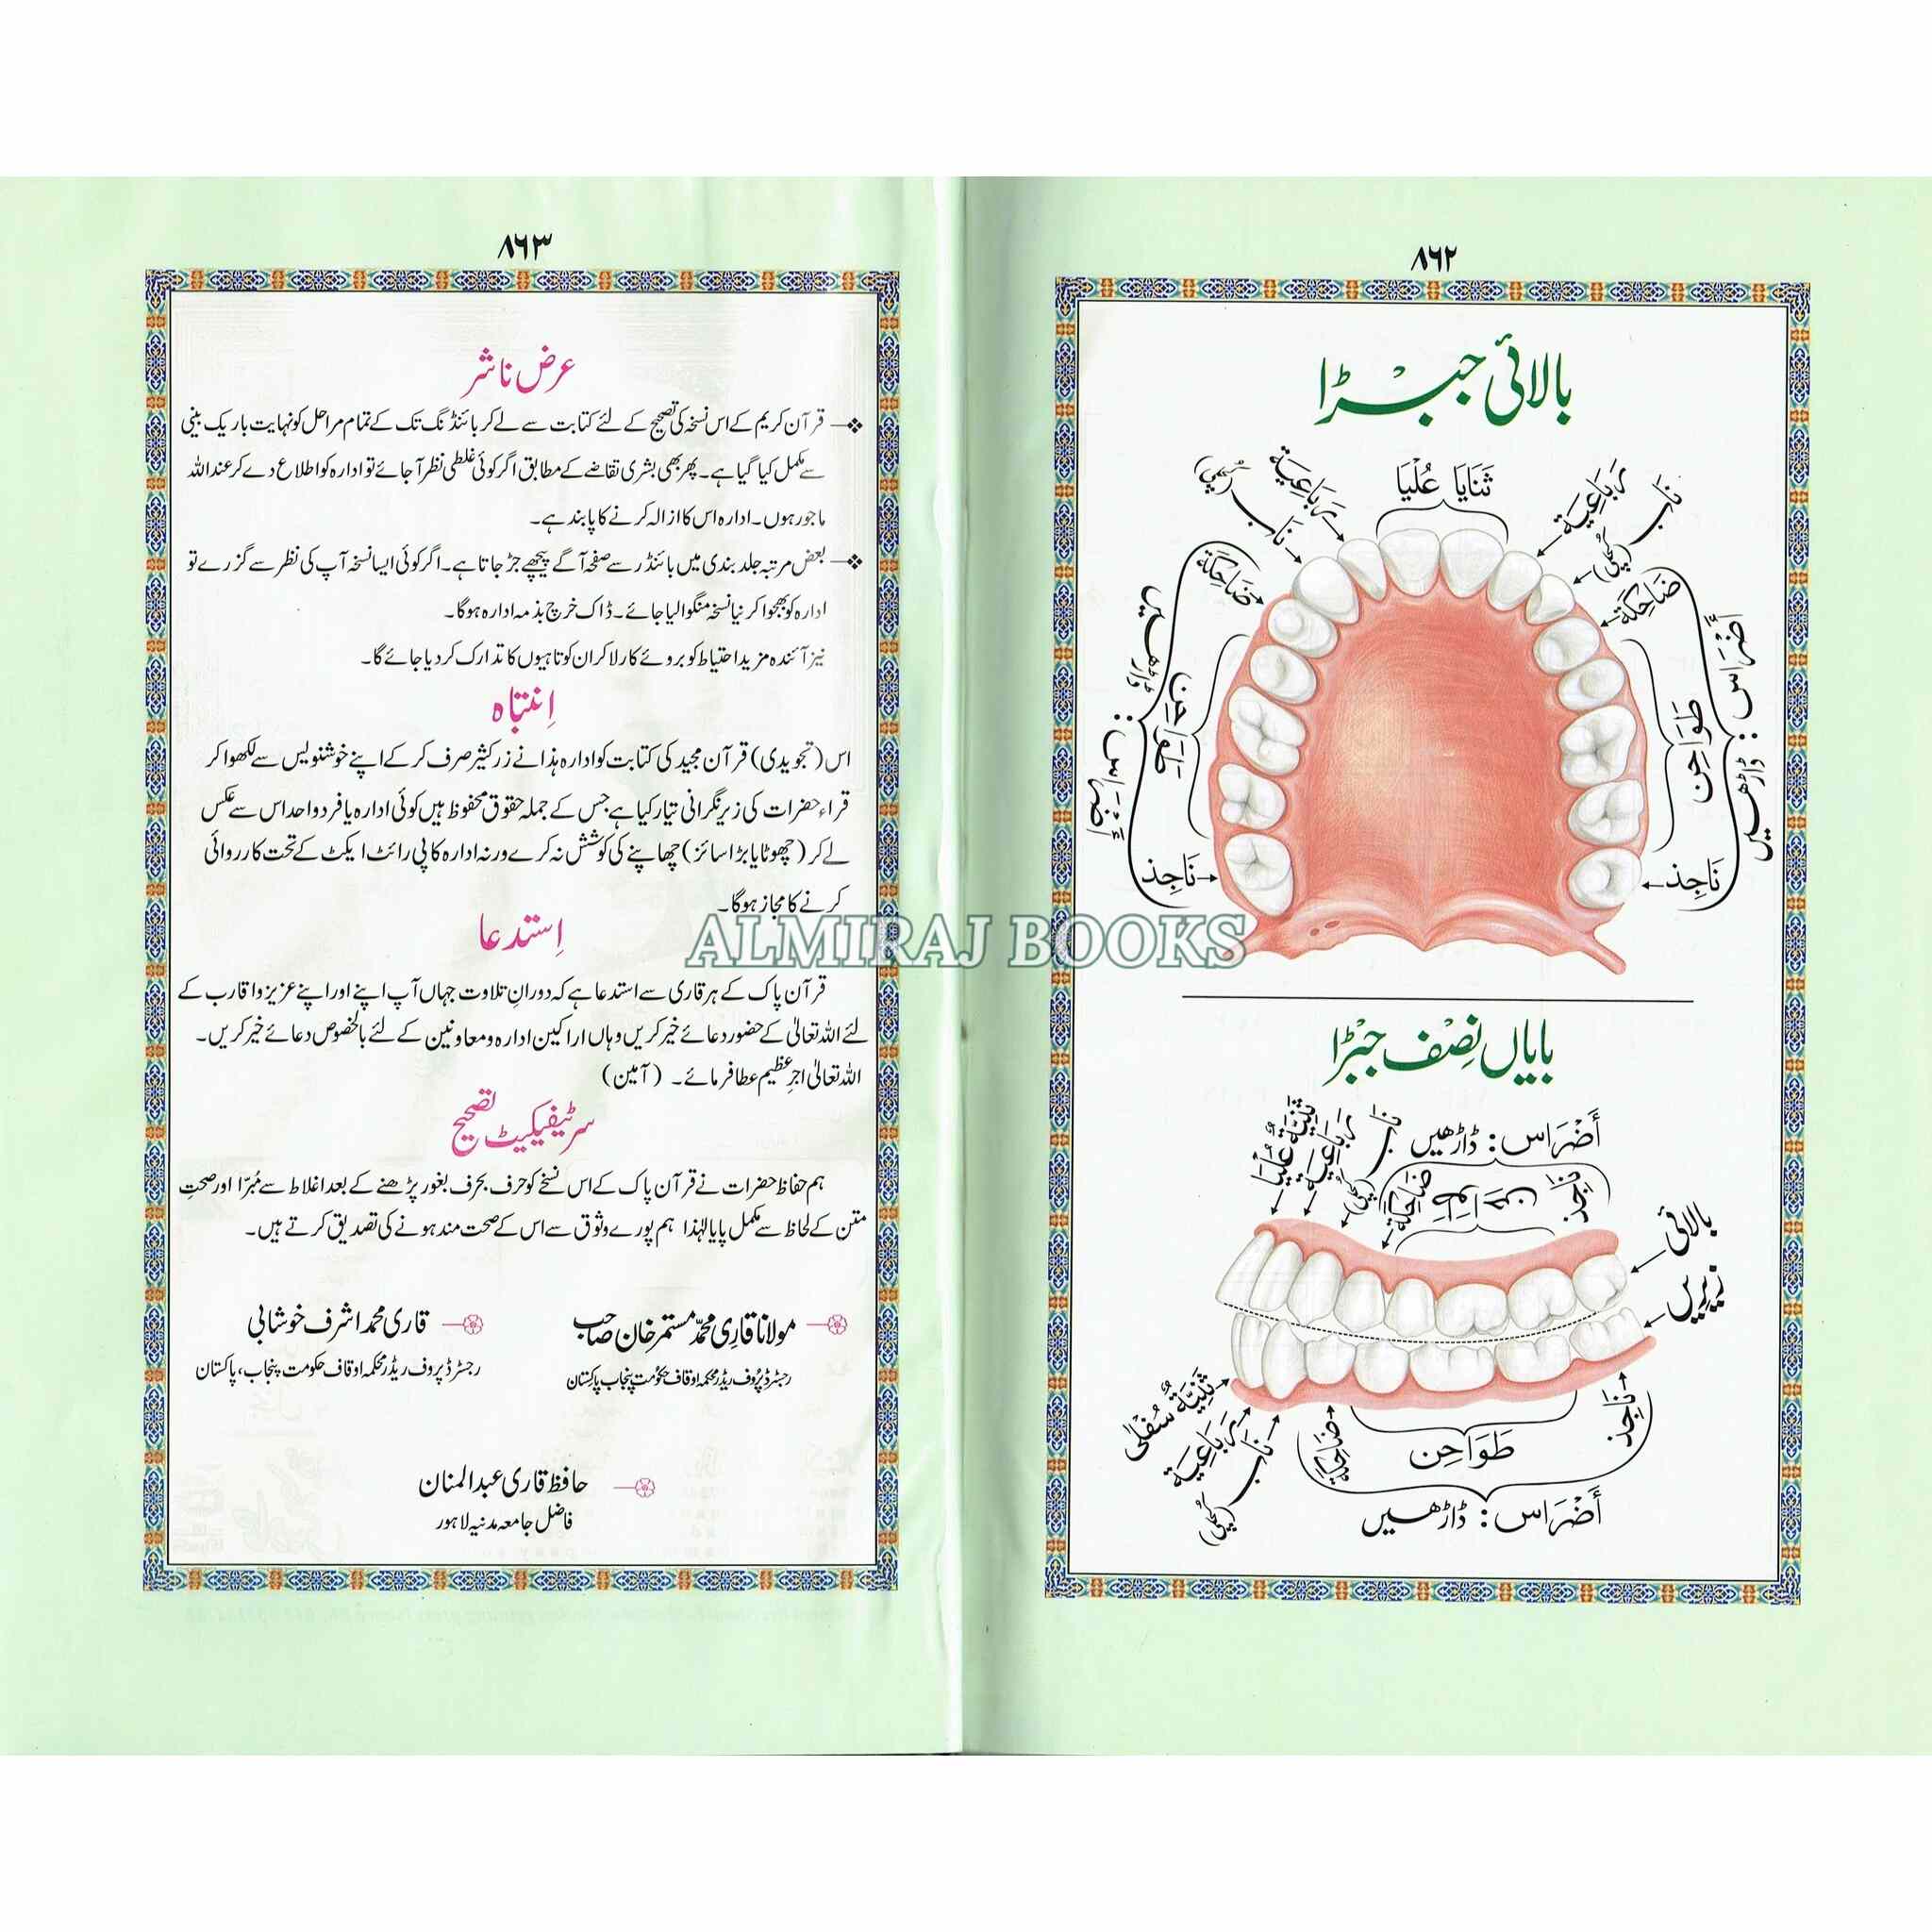 ٨٦٢
بالائی جبڑا
ثَنَايَا عُلْيَا
رَبَاعِيَة
نَاب
(کچلی)
ضَاحِكَة
طَوَاحِن
أَضْرَاس: ڈاڑھیں
نَاجِذ
رَبَاعِيَة
نَاب
(کچلی)
ضَاحِكَة
طَوَاحِن
أَضْرَاس: ڈاڑھیں
نَاجِذ
بایاں نِصْف جبڑا
أَضْرَاس: ڈاڑھیں
ثَنِيَّة عُلْيَا
رَبَاعِيَة
نَاب
(کچلی)
ضَاحِكَة
طَوَاحِن
نَاجِذ
بالائی
زیریں
ثَنِيَّة سُفْلٰی
رَبَاعِيَة
نَاب
(کچلی)
ضَاحِكَة
طَوَاحِن
نَاجِذ
أَضْرَاس: ڈاڑھیں
٨٦٣
عرض ناشر
قرآن کریم کے اس نسخہ کی تصحیح کے لئے کتابت سے لے کر بائنڈنگ تک کے تمام مراحل کو نہایت باریک بینی
سے مکمل کیا گیا ہے۔ پھر بھی بشری تقاضے کے مطابق اگر کوئی غلطی نظر آجائے تو ادارہ کو اطلاع دے کر عنداللہ
ماجور ہوں۔ ادارہ اس کا ازالہ کرنے کا پابند ہے۔
بعض مرتبہ جلد بندی میں بائنڈر سے صفحہ آگے پیچھے جڑ جاتا ہے۔ اگر کوئی ایسا نسخہ آپ کی نظر سے گزرے تو
ادارہ کو بھجوا کر نیا نسخہ منگوالیا جائے۔ ڈاک خرچ بذمہ ادارہ ہوگا۔
نیز آئندہ مزید احتیاط کو بروئے کار لا کر ان کوتاہیوں کا تدارک کر دیا جائے گا۔
اِنتباہ
اس (تجویدی) قرآن مجید کی کتابت کو ادارہ ہذا نے زر کثیر صرف کر کے اپنے خوشنویس سے لکھوا کر
قراء حضرات کی زیر نگرانی تیار کیا ہے جس کے جملہ حقوق محفوظ ہیں کوئی ادارہ یا فرد واحد اس سے عکس
لے کر (چھوٹا یا بڑا سائز) چھاپنے کی کوشش نہ کرے ورنہ ادارہ کاپی رائٹ ایکٹ کے تحت کارروائی
کرنے کا مجاز ہوگا۔
ALMIRAJ BOOKS
اِستدعا
قرآن پاک کے ہر قاری سے استدعا ہے کہ دورانِ تلاوت جہاں آپ اپنے اور اپنے عزیز واقارب کے
لئے اللہ تعالیٰ کے حضور دعائے خیر کریں وہاں اراکین ادارہ و معاونین کے لئے بالخصوص دعائے خیر کریں۔
اللہ تعالیٰ اجرِ عظیم عطا فرمائے۔ (آمین)
سرٹیفیکیٹ تصحیح
ہم حفاظ حضرات نے قرآن پاک کے اس نسخے کو حرف بحرف بغور پڑھنے کے بعد اغلاط سے مُبرّا اور صحتِ
متن کے لحاظ سے مکمل پایا لہٰذا ہم پورے وثوق سے اس کے صحت مند ہونے کی تصدیق کرتے ہیں۔
مولانا قارِی محمّد مستمر خان صاحب
رجسٹرڈ پُروف ریڈر محکمہ اوقاف حکوُمت پنجاب پاکِستان
قاری محمد اشرف خوشابی
رجسٹرڈ پروف ریڈر محکمہ اوقاف حکومت پنجاب، پاکستان
حافظ قاری عبدالمنان
فاضل جامعہ مدنیہ لاہور